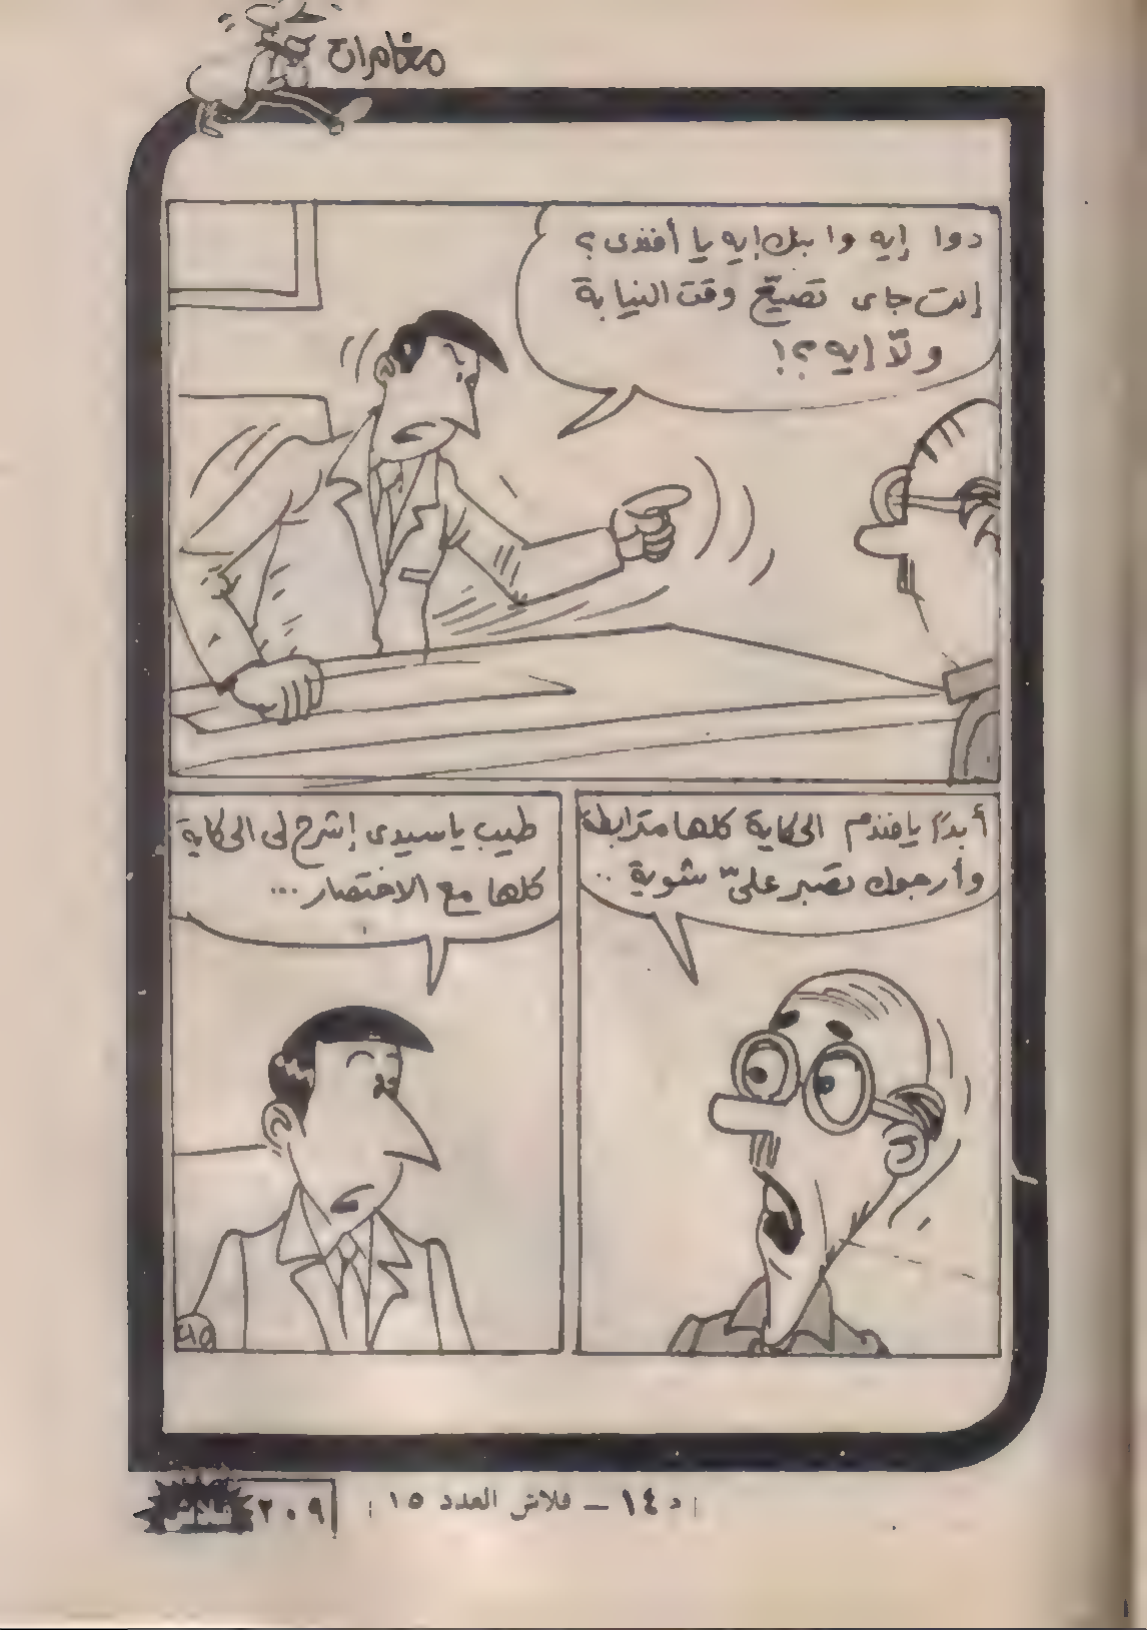 مغامرات
دوا إيه وا بتاع إيه يا أفندى ؟
إنت جاى تضيّع وقت النيابة
ولّا إيه ؟!
أبدًا يا فندم الحكاية كلها مترابطة
وأرجوك تصبر علىّ شوية ..
طيب يا سيدى إشرح لى الحكاية
كلها مع الاختصار ...
( د ١٤ – فلاش العدد ١٥ )
٢٠٩ فلاش